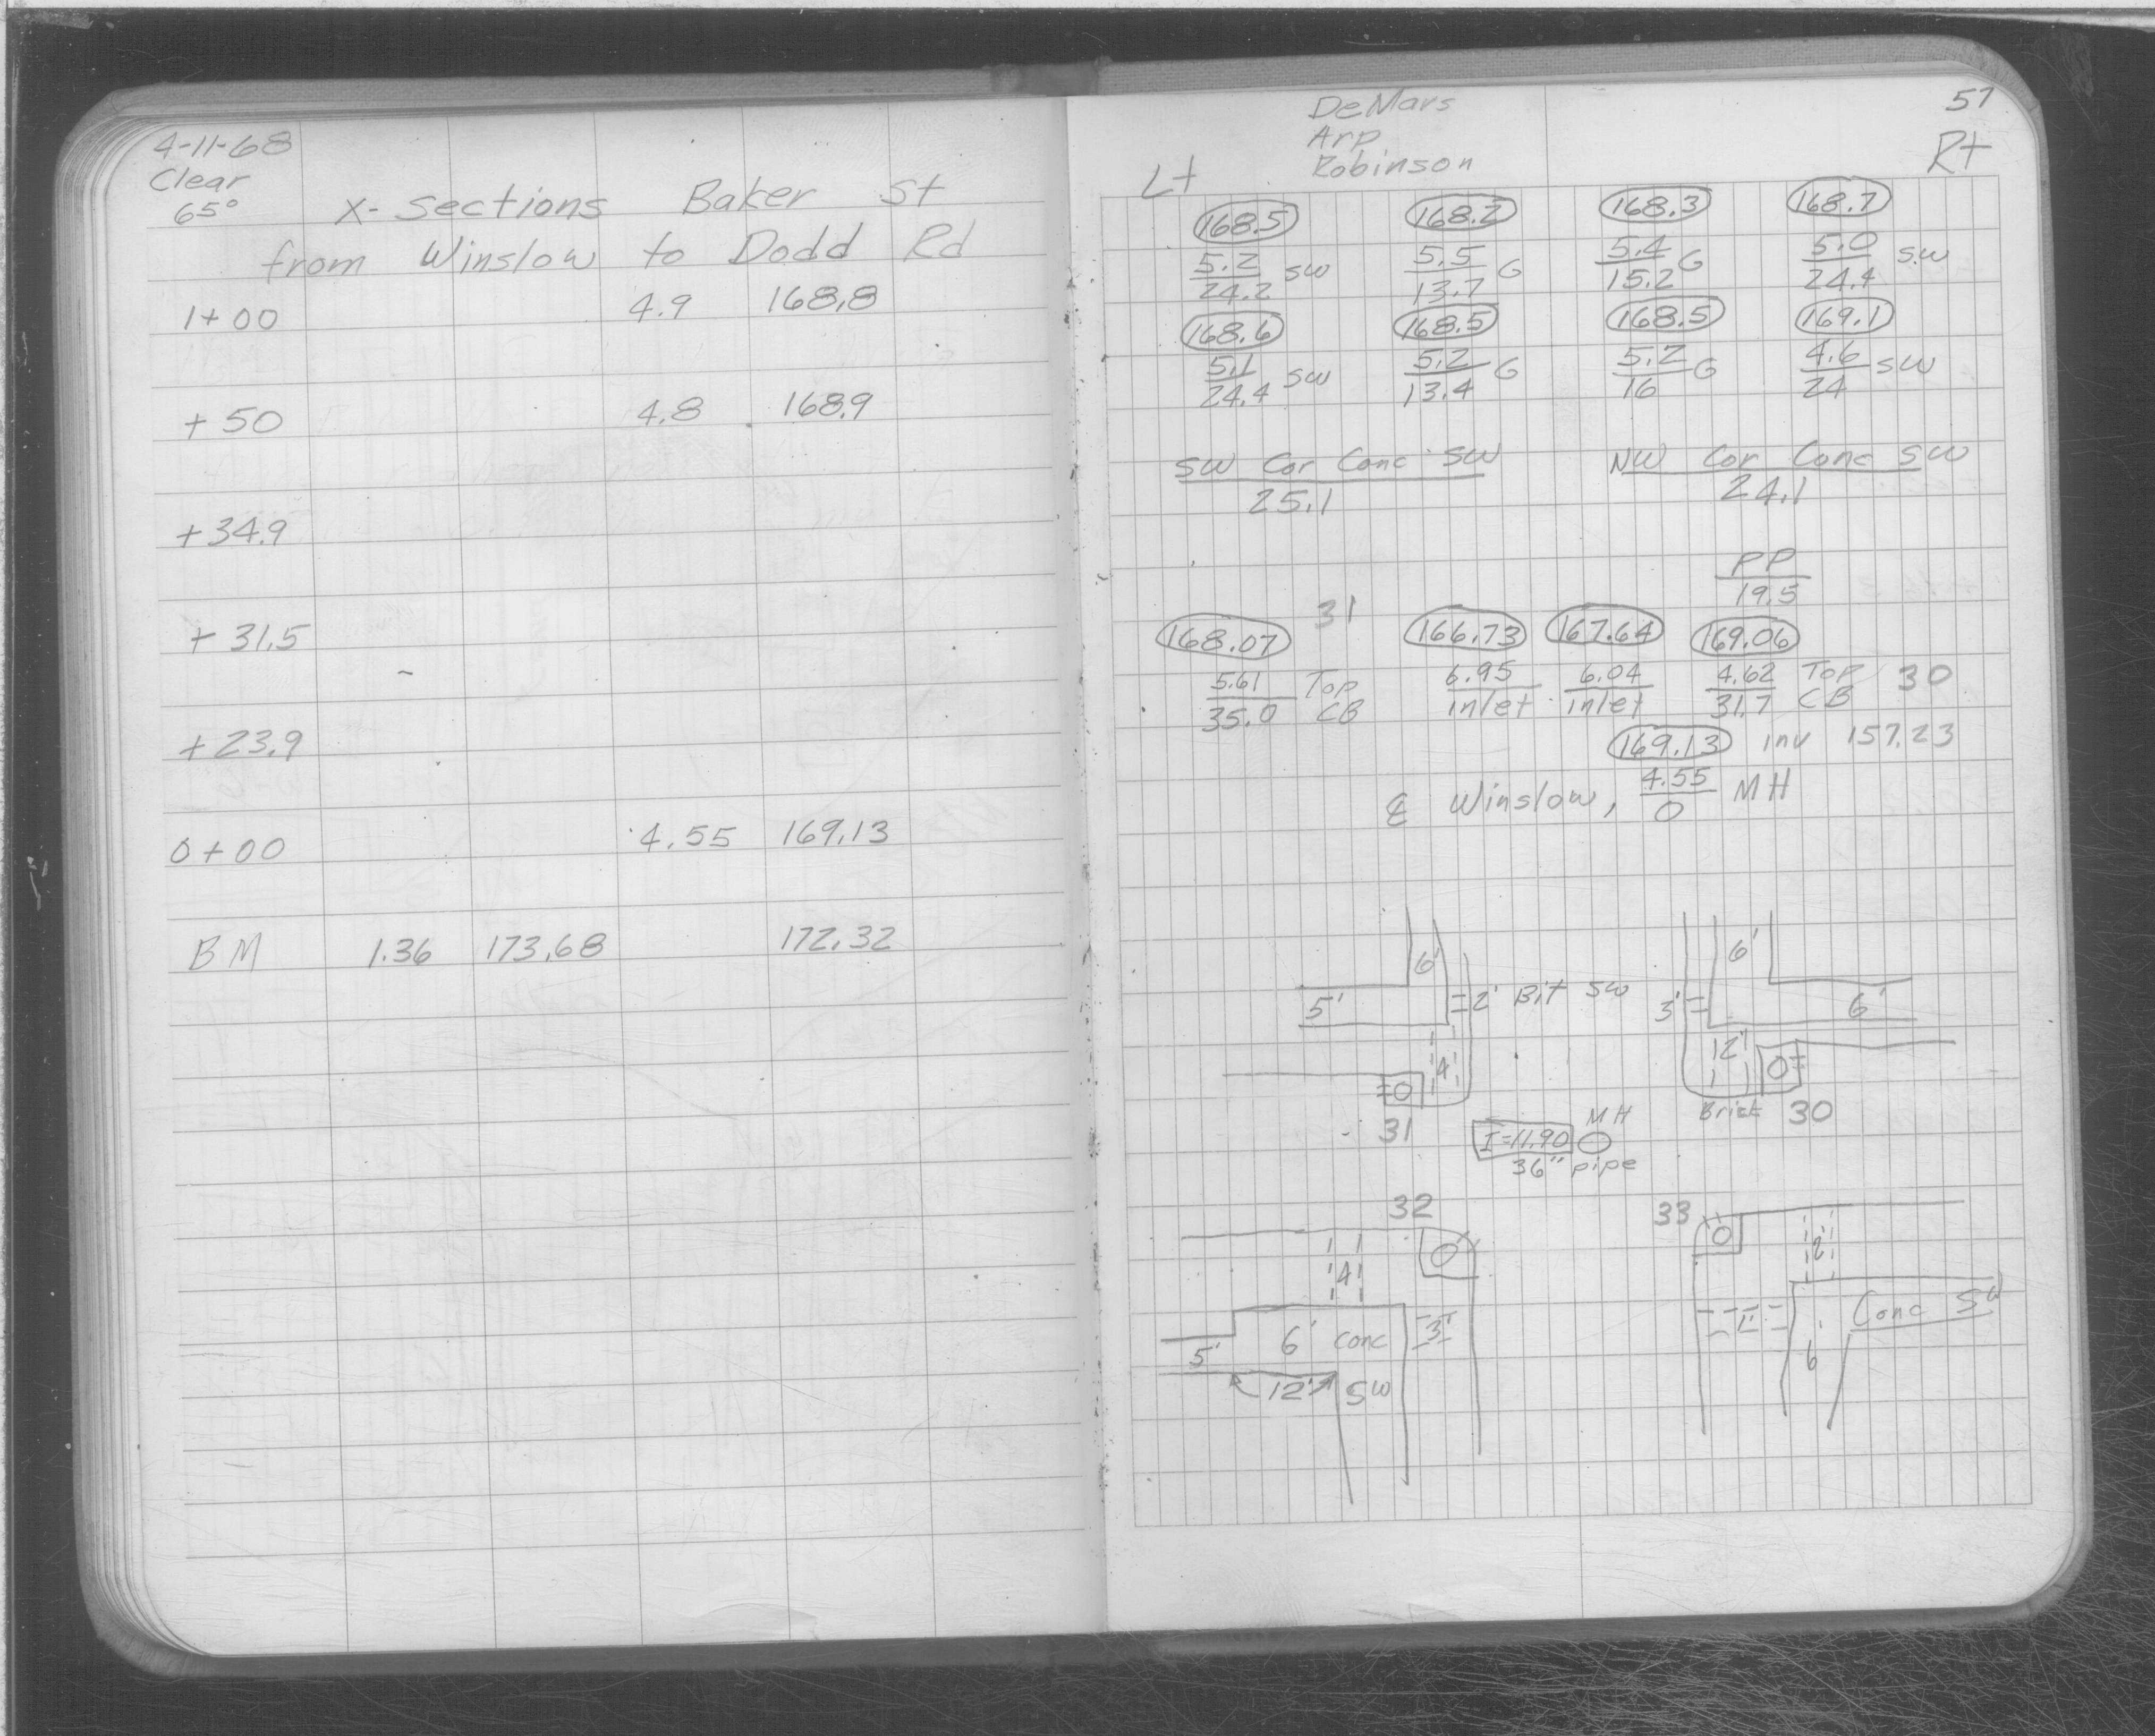 4-11-68
Clear
65°
X-Sections Baker St
from Winslow to Dodd Rd
1+00 4.9 168.8
+50 4.8 168.9
+34.9
+31.5
+23.9
0+00 4.55 169.13
BM 1.36 173.68 172.32
DeMars
Arp
Robinson
57
Lt Rt
168.5 168.2 168.3 168.7
5.2 SW 5.5 G 5.4 G 5.0 SW
24.2 13.7 15.2 24.4
168.6 168.5 168.5 169.1
5.1 SW 5.2 G 5.2 G 4.6 SW
24.4 13.4 16 24
SW Cor Conc SW NW Cor Conc SW
25.1 24.1
PP
19.5
31
168.07 166.73 167.64 169.06
5.61 Top 6.95 6.04 4.62 Top 30
35.0 CB inlet inlet 31.7 CB
169.13 inv 157.23
℄ Winslow, 4.55 MH
0
6' 6'
5' =2' Bit SW 3'= 6'
4' 2'
31 Brick 30
MH
I=11.90
36" pipe
32 33
4' 2'
6' conc 3' Conc SW
5' 6'
12' SW